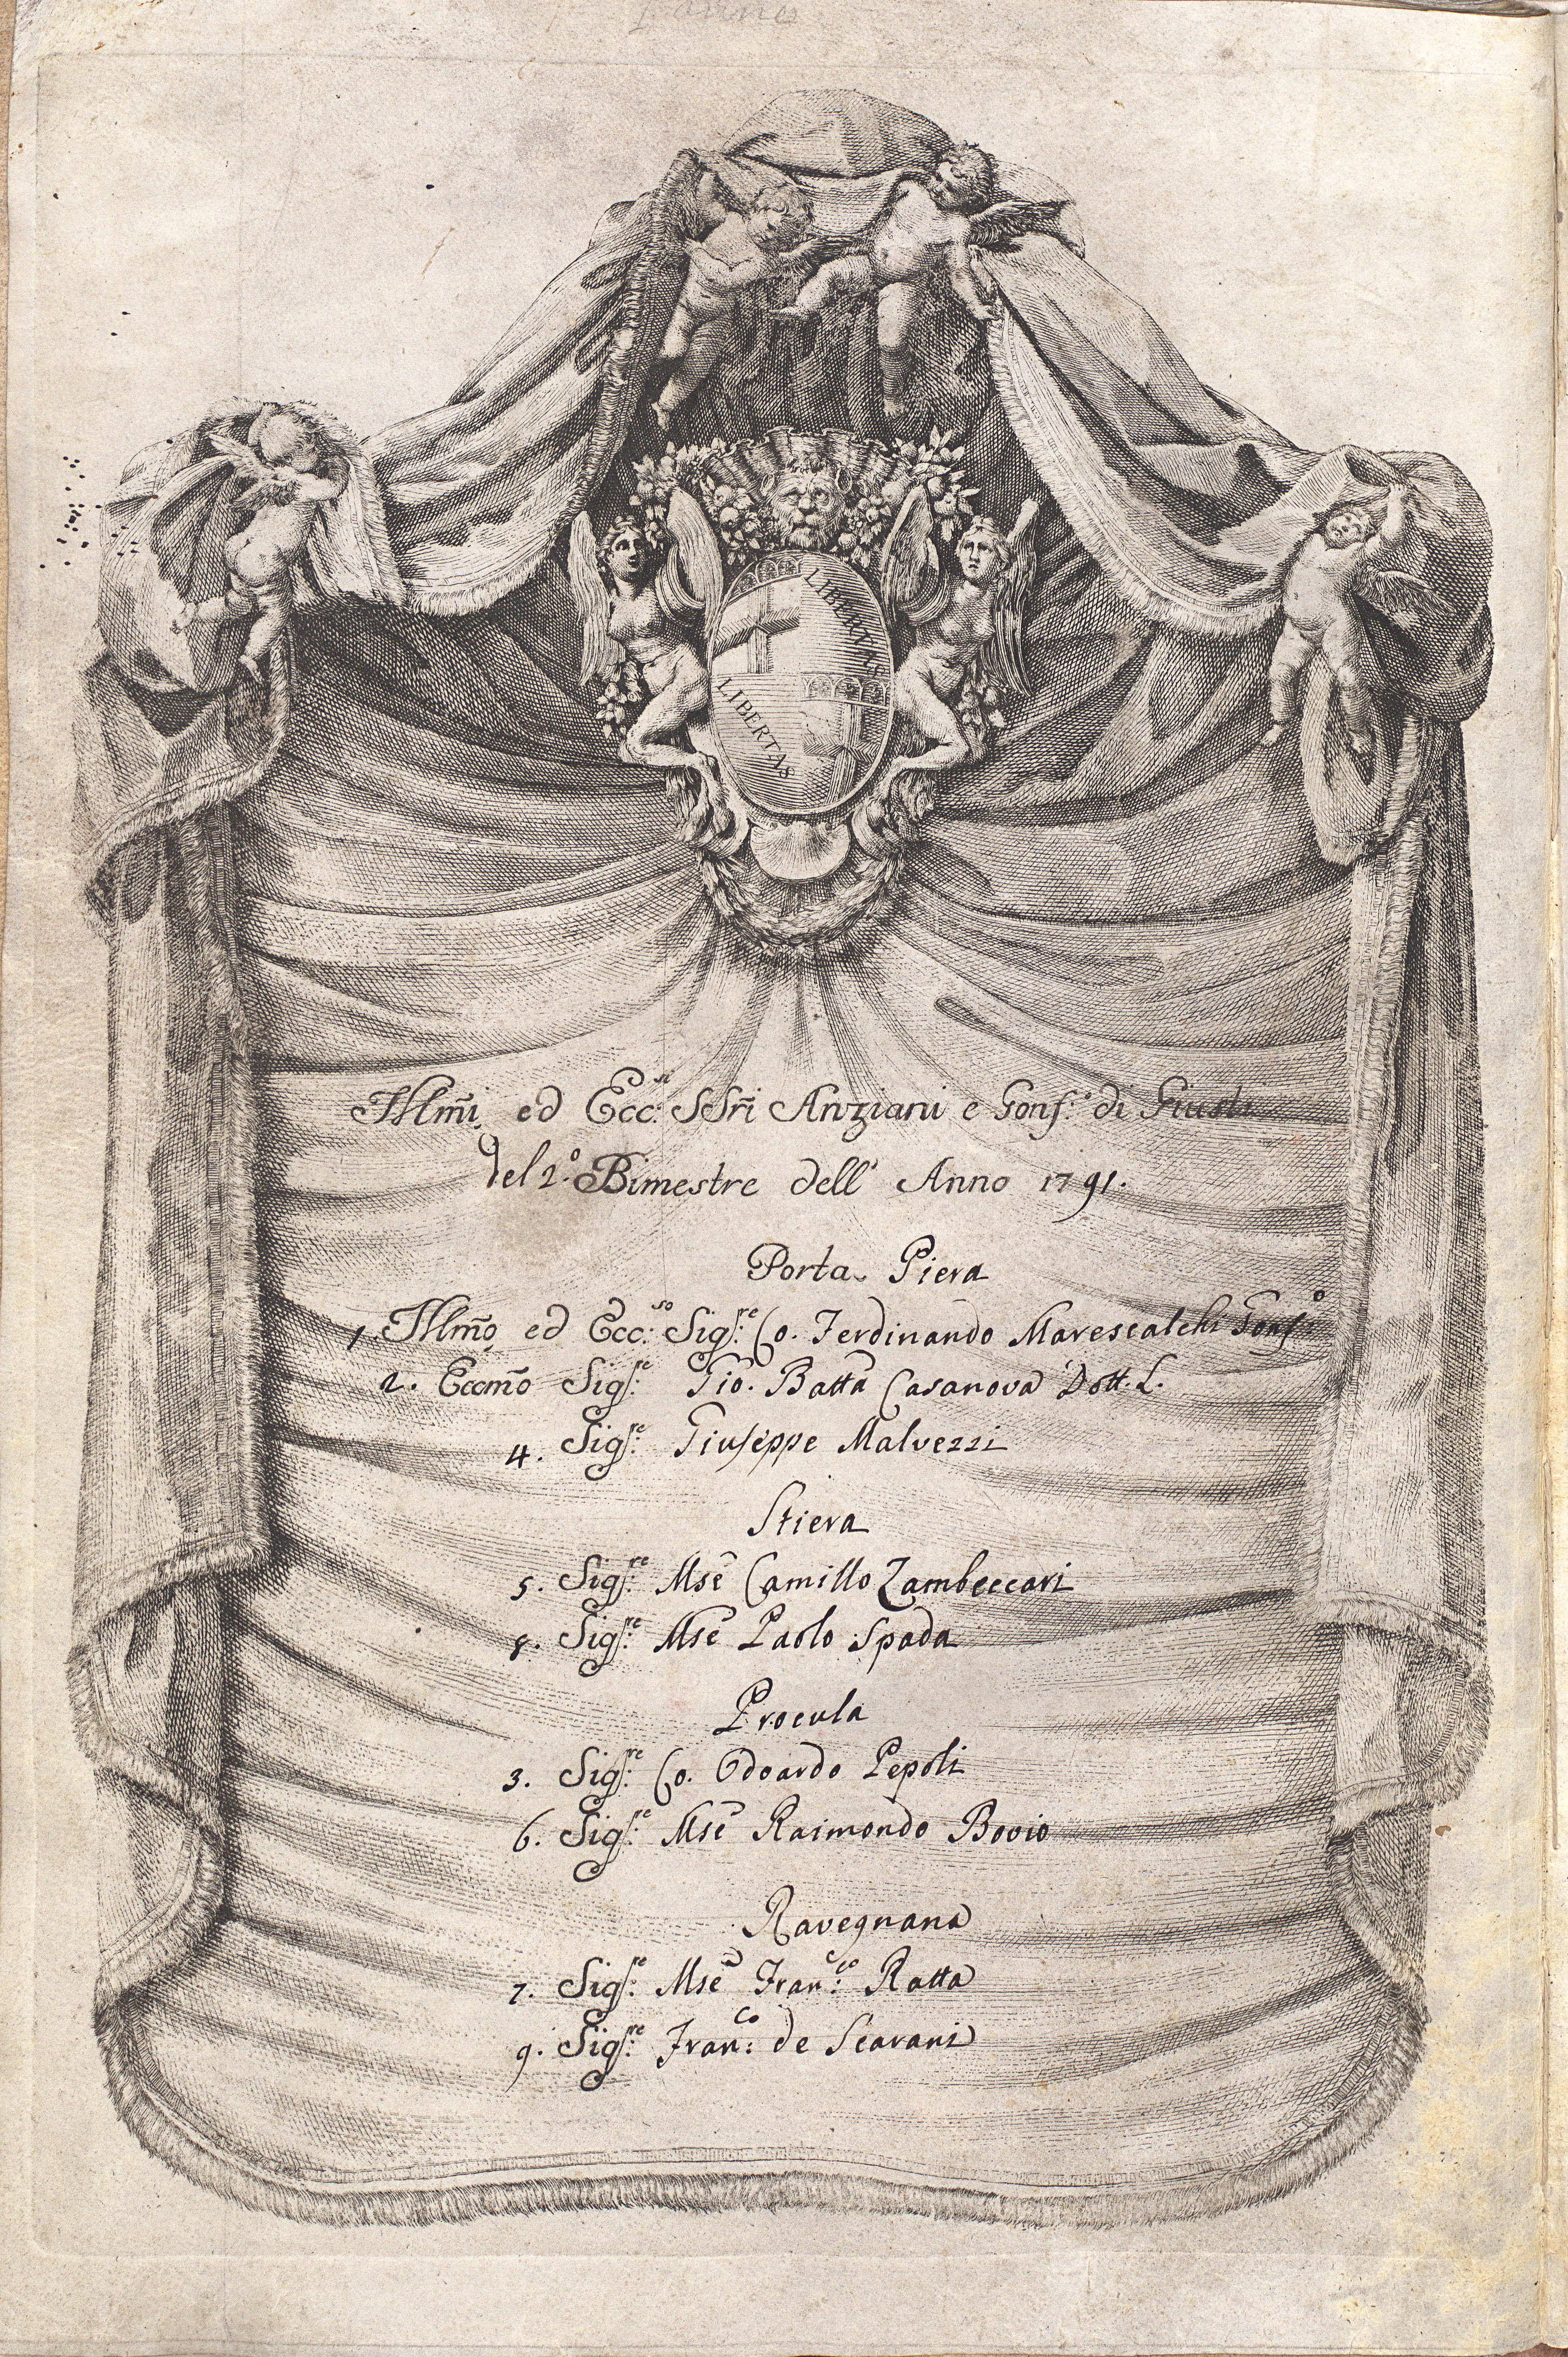 LIBERTAS
LIBERTAS
Illm̃i ed Ecc:si SSr̃i Anziani e Gonf:e di Giust:
del 2.º Bimestre dell' Anno 1791.
Porta Piera
1. Illm̃o ed Ecc:so Sig:re Co. Ferdinando Marescalchi Gonf:o
2. Eccm̃o Sig:re Gio. Batta Casanova Dott. L.
4. Sig:re Giuseppe Malvezzi
Stiera
5. Sig:re Mse Camillo Zambeccari
8. Sig:re Mse Paolo Spada
Procula
3. Sig:re Co. Odoardo Pepoli
6. Sig:re Mse Raimondo Bovio
Ravegnana
7. Sig:re Mse Fran:co Ratta
9. Sig:re Fran:co de Scarani